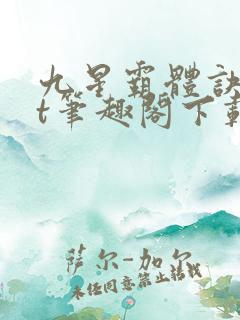 九星霸體訣
t筆趣閣下載
萨尔-加尔
未经同意禁止转载